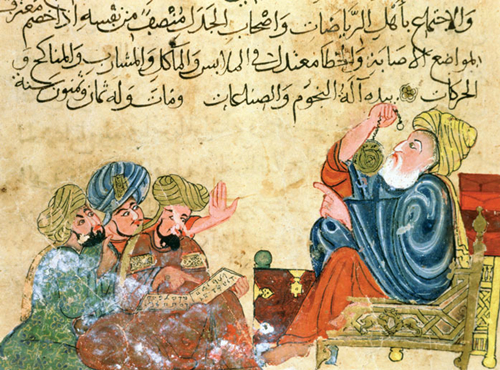 والاجتماع بأهل الرياضات وأصحاب الجدل منتصف من نفسه إذا خصم معترف
لمواضع الاصابة والخطا معتدل في الملابس والمآكل والمشارب والمناكح و
الحركات بيده آلة النجوم والصناعات ومات وله ثمان وستون سنة